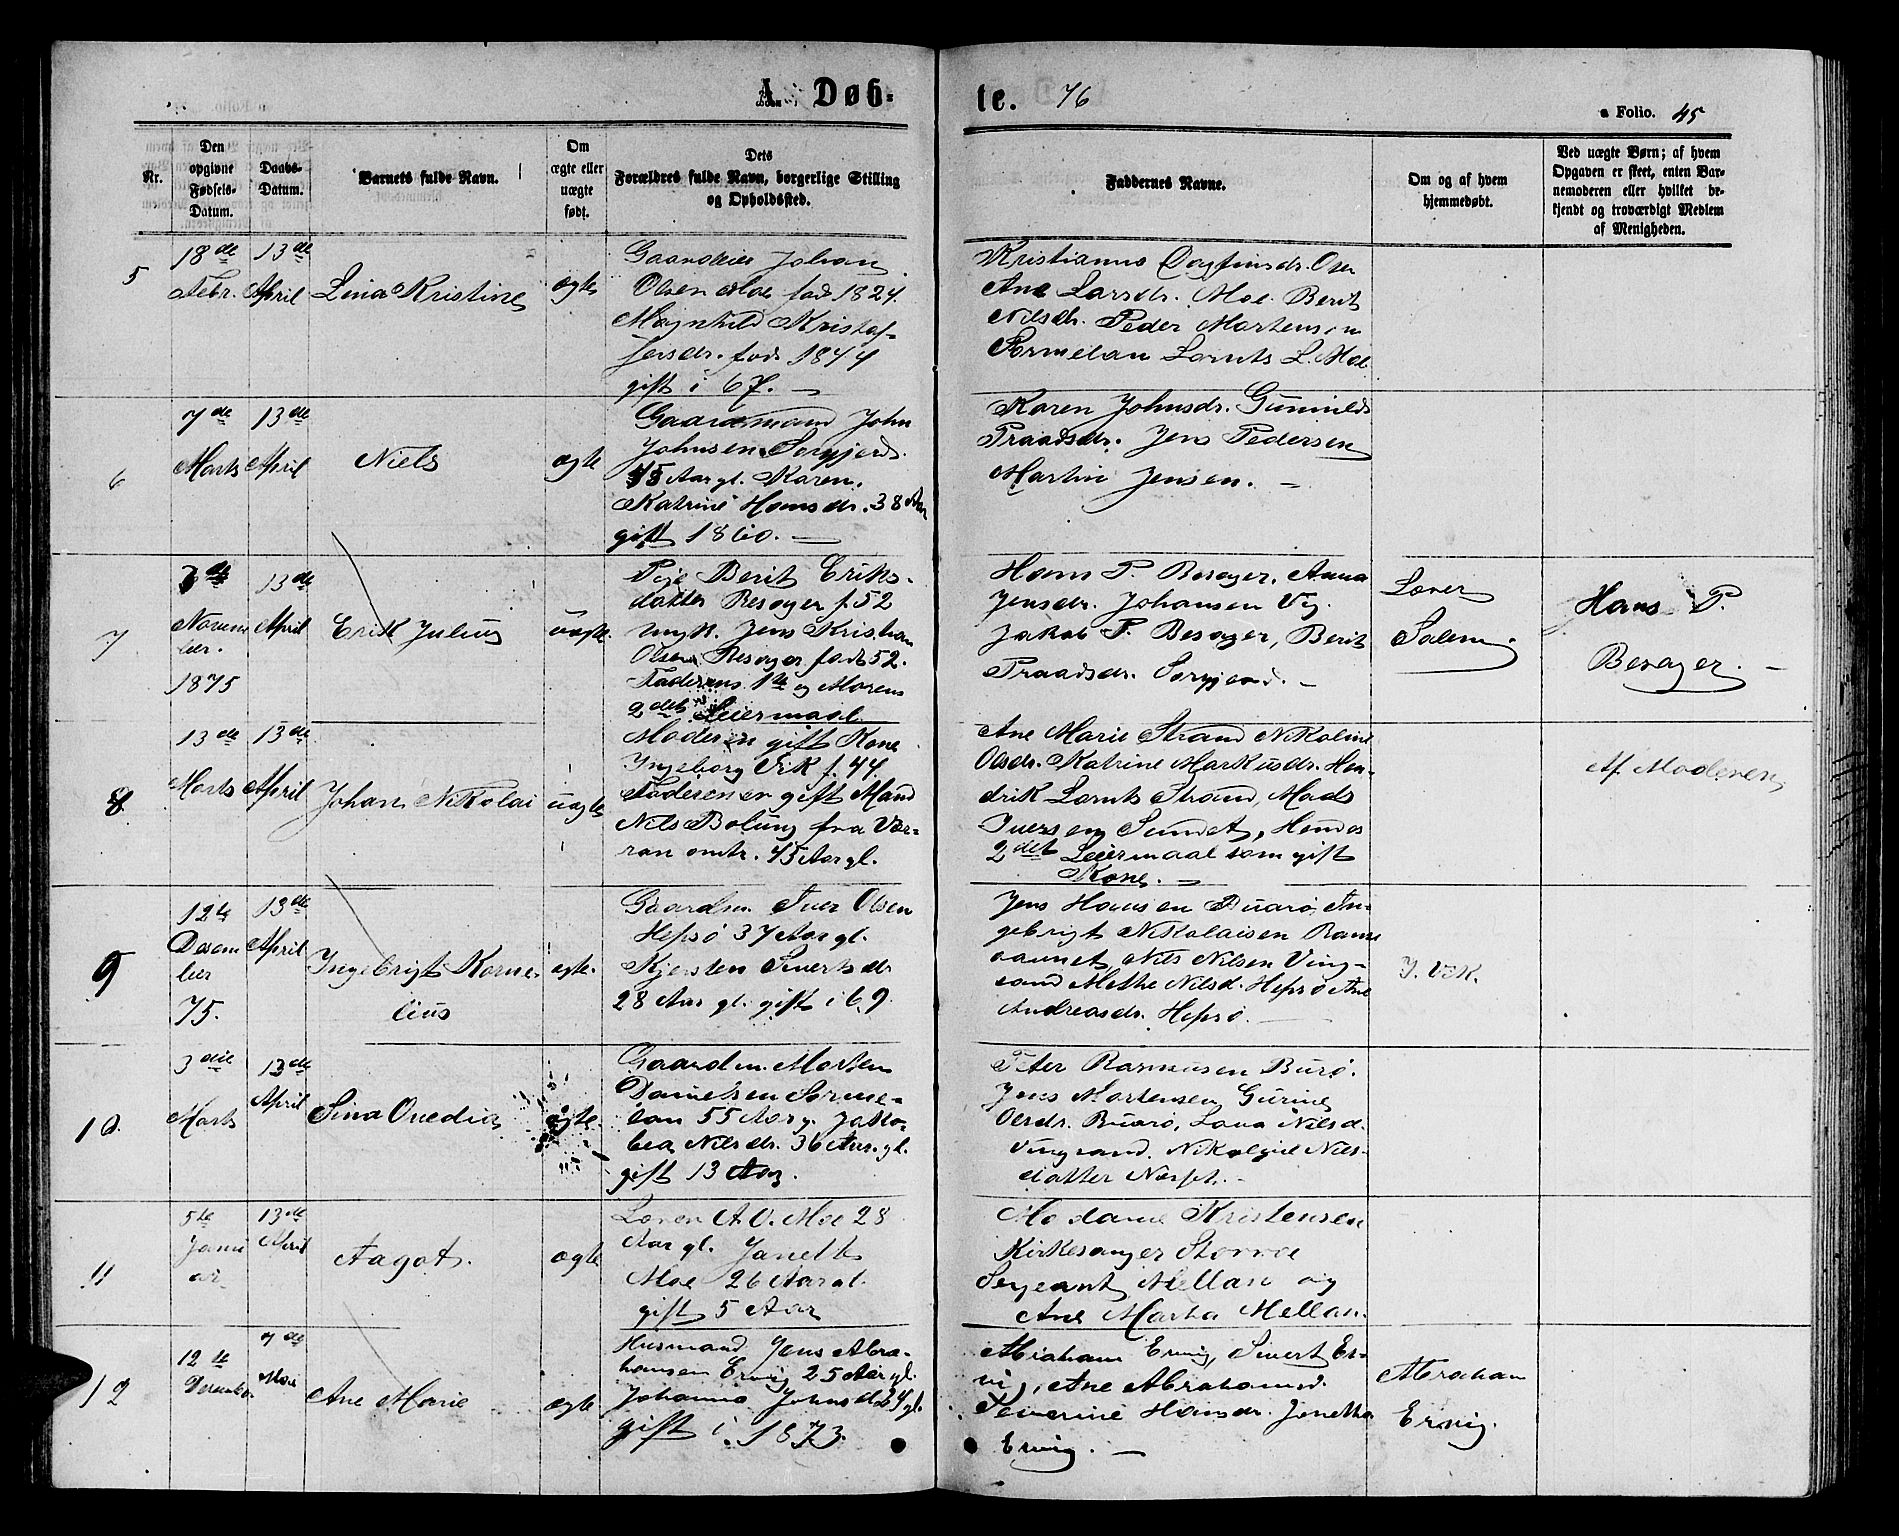 A. Døb-
te. 76
Folio. 45
Nr.
Den
opgivne
Fødsels-
Datum.
Daabs-
Datum.
Barnets fulde Navn.
Om
ægte eller
uægte
født.
Dets
Forældres fulde Navn, borgerlige Stilling
og Opholdssted.
Faddernes Navne.
Om og af hvem
hjemmedøbt.
Ved uægte Børn; af hvem
Opgaven er skeet, enten Bar-
nemoderen eller hvilket be-
kjendt og troværdigt Medlem
af Menigheden.
5
18de
Febr.
13de
April
Lina Kristine
ægte
Gaardeier Johan
Olsen Moe født 1824.
Magnhild Kristof-
fersdr. født 1844
gift i 67. —
Kristianna Dagfinsdr. Osen
Ane Larsdr. Moe. Berit
Nilsdr. Peder Mortensen
Sørmelan Lornts L. Moe
6
7de
Marts
13de
April
Niels
ægte
Gaardmand John
Johnsen Sørgjerd.
45 Aar gl. Karen.
Katrine Hansdr. 38 Aar
gift 1860. —
Karen Johnsdr. Gunnild
Traadsdr. Jens Pedersen
Martin Jensen. —
7
Novem
ber.
1875
13de
April
Erik Julius
uægte
Pige Berit Eriks-
datter Besager f. 52
Ungk. Jens Kristian
Olsen Besager født 52.
Faderens 1te og Morens
2det Leiermaal.
Hans P. Besager, Anna
Jensdr. Johansen Vig.
Jakob P. Besager, Berit
Traadsdr. Sørgjerd. —
Lærer
Salem
Hans P.
Besager. —
8
13de
Marts
13de
April
Johan Nikolai
uægte
Moderen gift Kone
Ingeborg Vik f. 44.
Faderen er gift Mand
Nils Bølung fra Vær-
ran omtr. 45 Aar gl.
Ane Marie Strand Nikoline
Olsdr. Katrine Markusdr. Hen-
drik Lornts Strand, Mads
Iversen Sundet, Hendes
2det Leiermaal som gift
Kone. —
Af Moderen
9
12te
Decem
ber
75.
13de
April
Ingebrigt Korne-
lius
ægte.
Gaardm. Iver Olsen
Hepsø 37 Aar gl.
Kjersten Sivertsdr
28 Aar gl. gift i 69
Jens Hansen Buarø, In-
gebrigt Nikolaisen Ramse
Nils Nilsen Ving-
sand Methe Nilsd. Hepsø Ane
Andreasdr. Hepsø. —
J. Vik.
10.
3die
Marts
13de
April
Sina Ovedia
ægte.
Gaardm. Morten
Danielsen Sørme-
lan 55 Aar g. Jako-
bea Nilsdr. 36 Aar. gl.
gift 13 Aar.
Peter Rasmusen Burø.
Jens Mortensen, Gurine
Olsdr. Buarø, Lava Nilsd.
Vingsand. Nikoline Nils-
datter Næset. -
11
5te
Janu
ar
13de
April
Aagot.
ægte
Læren A. O. Moe 28
Aar gl. Janette
Moe 26 Aar gl.
gift 5 Aar
Madame Kristensen
Kirkesanger Størroe
Sergeant Mellan og
Ane Marta Mellan.
12
12te
December
7de
Mai
Ane Marie
ægte
Husmand Jens Abra-
hamsen Ervig 25 Aar gl.
Johanna Johnsd. 24 gl.
gift i 1873.
Abraham Ervig, Sivert Er-
vig, Ane Abrahamsd.
Severine Hansdr. Jonetha
Ervig. —
Abraham
Ervig.